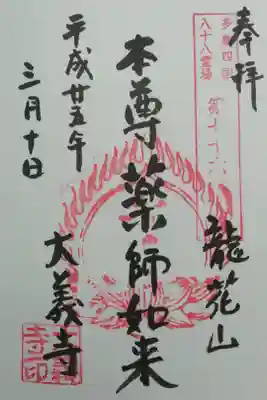 奉拝
多摩四国
八十八霊場
龍花山
本尊薬師如来
大義寺
平成廿五年
三月十日